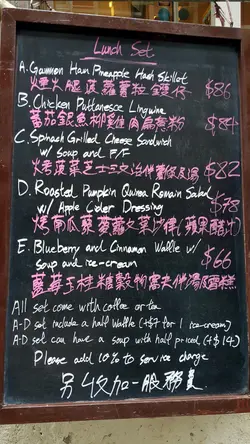 Lunch Set
A. Gammon Ham Pineapple Hash Skillet
煙火腿菠蘿薯粒 $86
B. Chicken Puttanesca Linguine
蕃茄銀魚柳雞肉扁意粉 $84
C. Spinach Grilled Cheese Sandwich
w/ Soup and F/F
烤菠菜芝士三文治伴薯條及湯 $82
D. Roasted Pumpkin Quinoa Romain Salad
w/ Apple Cider Dressing $78
烤南瓜藜麥蘿文菜沙律(蘋果醋汁)
E. Blueberry and Cinnamon Waffle w/
soup and ice-cream $66
藍莓玉桂糖穀物窩夫伴湯及雪糕
All set come with coffee or tea
A-D set include a half Waffle (+$7 for 1 ice-cream)
A-D set can have a soup with half priced (+$14)
Please add 10% to service charge
另收加一服務費